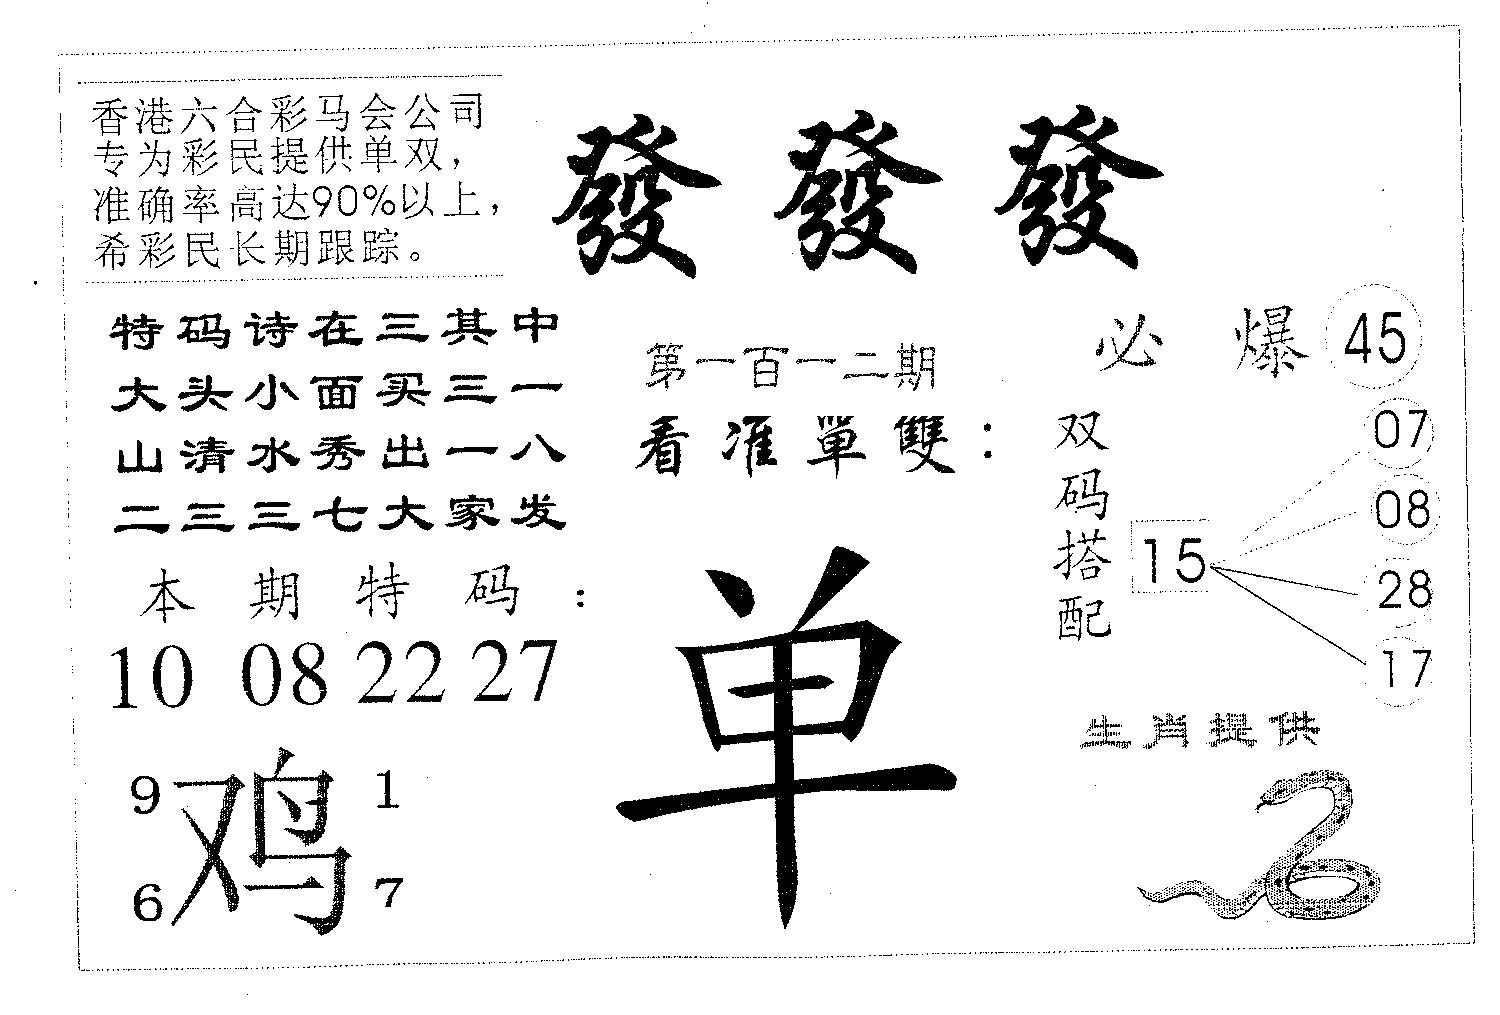 香港六合彩马会公司
专为彩民提供单双，
准确率高达90%以上，
希彩民长期跟踪。
發 發 發
特码诗在三其中
大头小面买三一
山清水秀出一八
二三三七大家发
第一百一二期
看准單雙：
单
必 爆 45
双码搭配
15
07
08
28
17
本期特码：
10 08 22 27
9 1
鸡
6 7
生肖提供